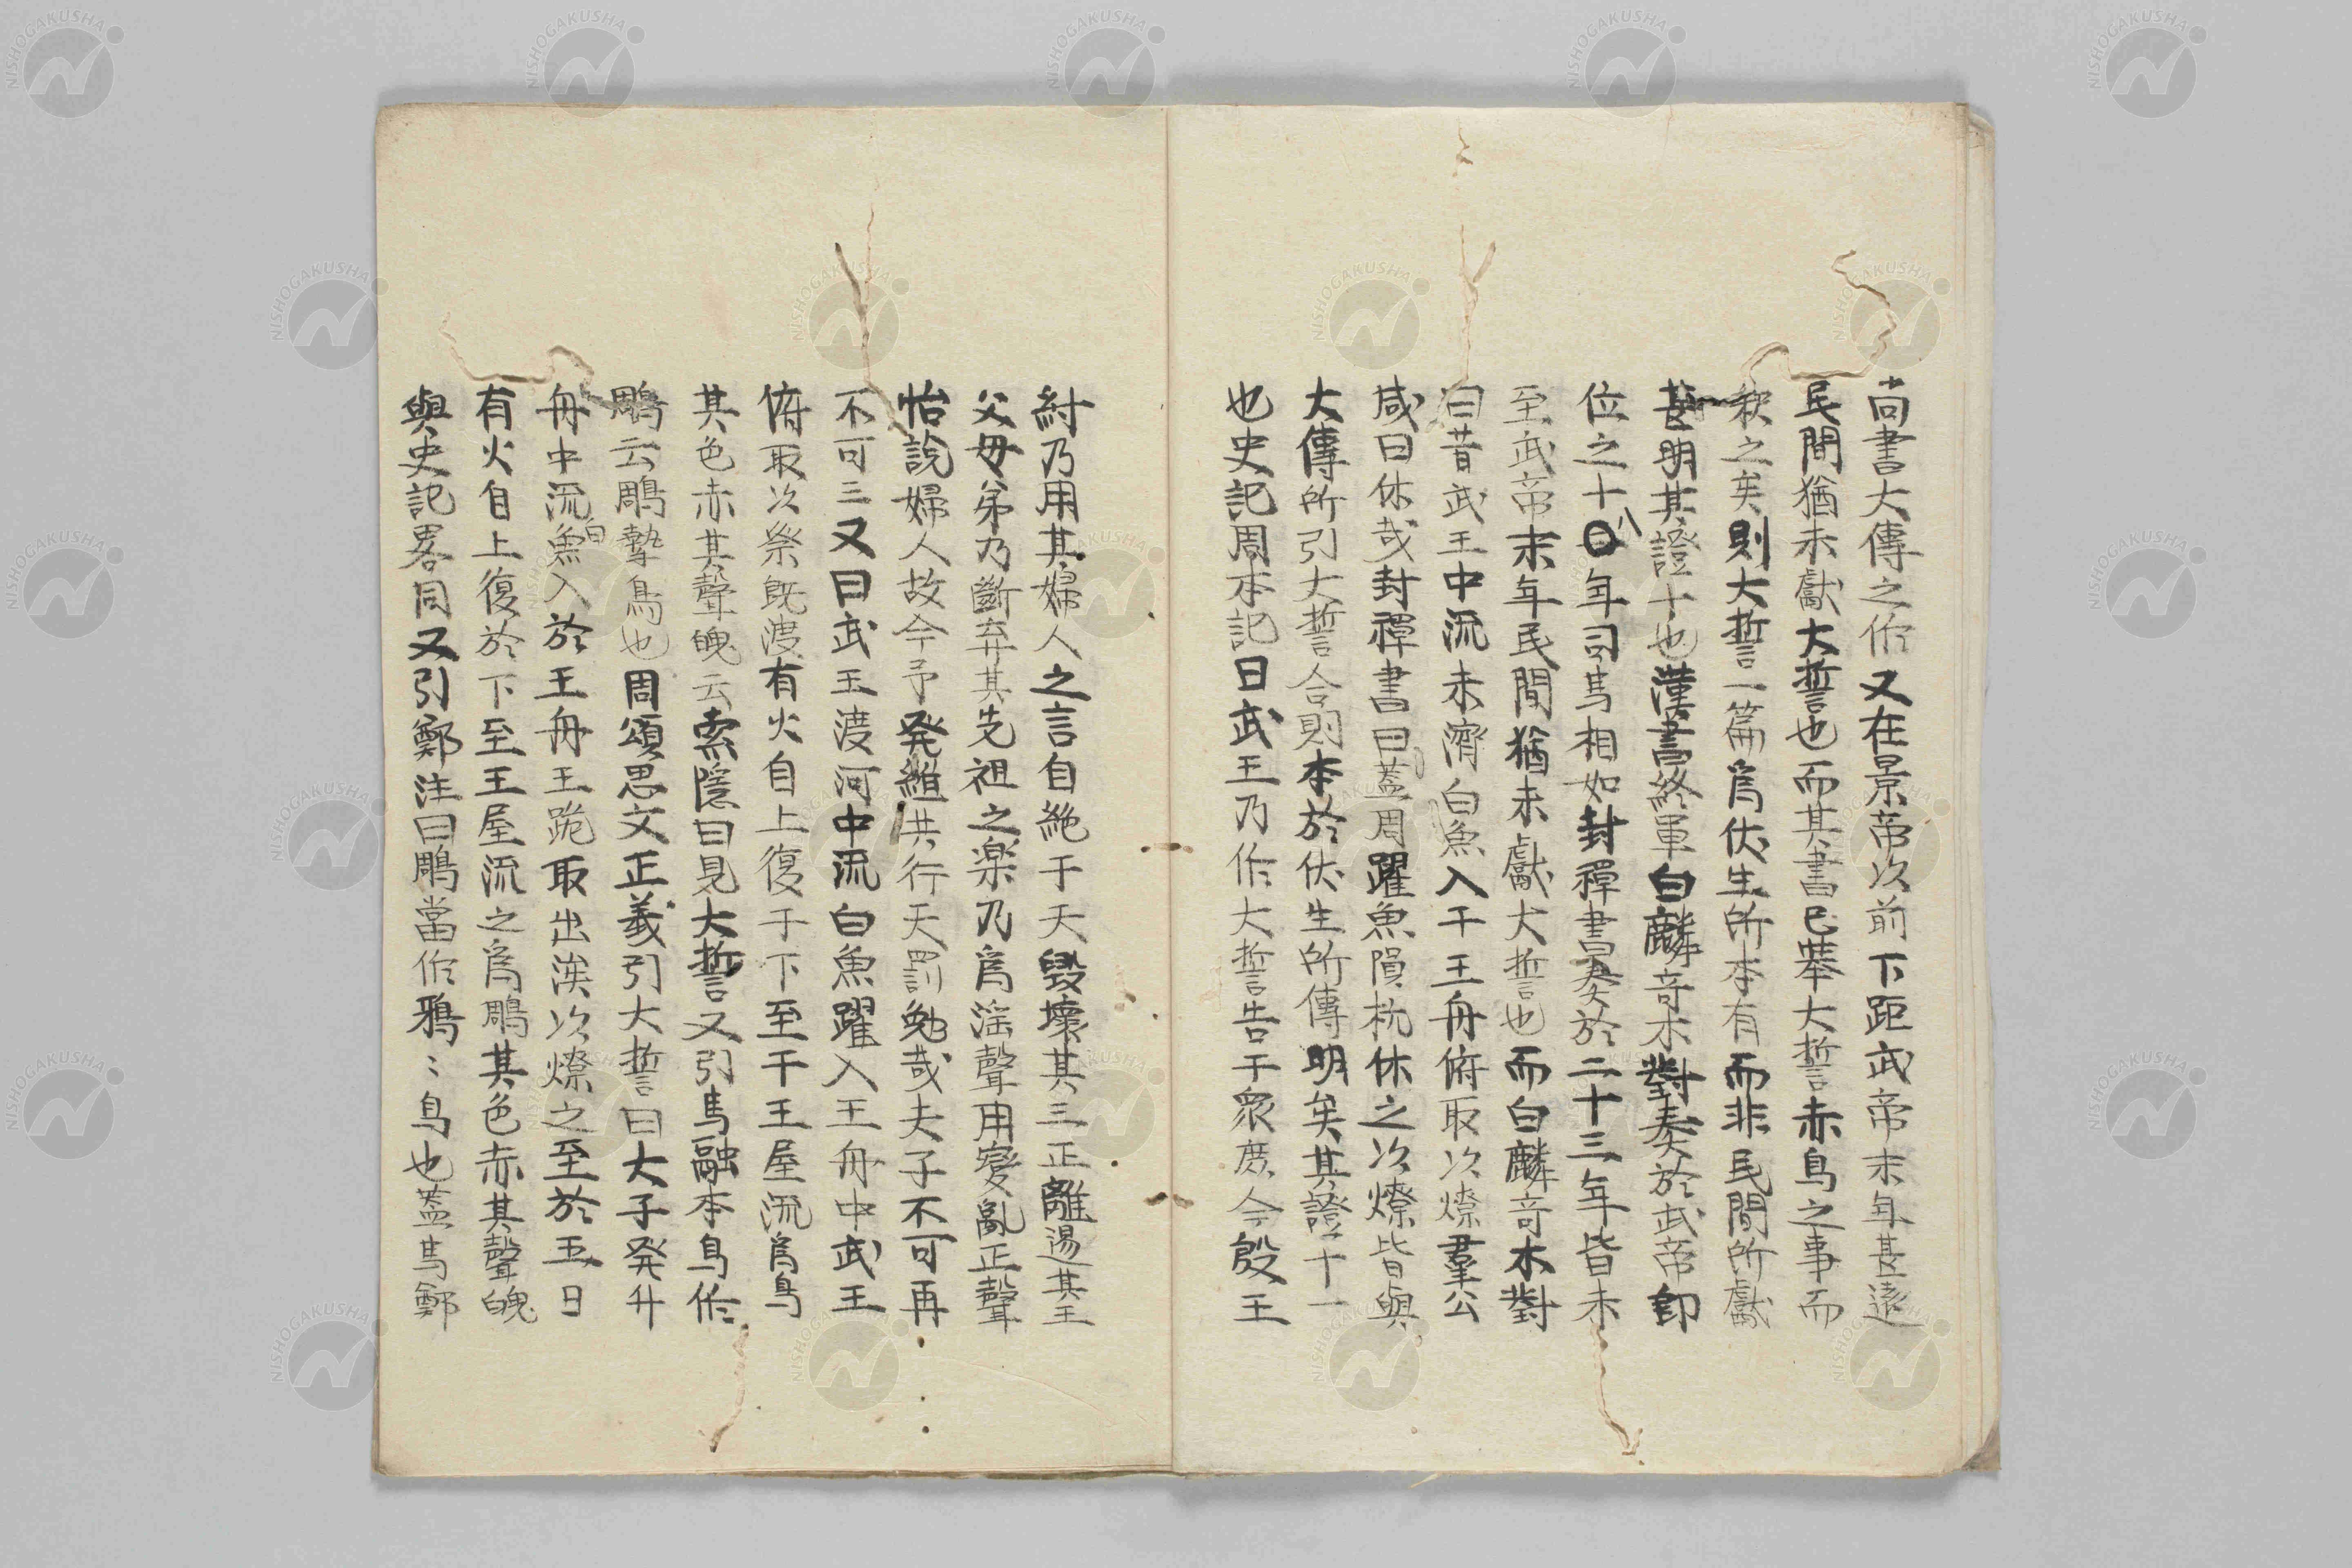 尚書大傳之作又在景帝以前下距武帝末年甚遠
民間猶未獻大誓也而其書已擧大誓赤烏之事而
釈之矣則大誓一篇爲伏生所本有而非民間所獻
甚明其證十也漢書終軍白麟奇木對奏於武帝即
位之十八年司馬相如封禪書奏於二十三年皆未
至武帝末年民間猶未獻大誓也而白麟奇木對
曰昔武王中流未濟白魚入于王舟俯取以燎羣公
咸曰休哉封禪書曰蓋周躍魚隕杭休之以燎皆與
大傳所引大誓合則本於伏生所傳明矣其證十一
也史記周本記曰武王乃作大誓告于衆庶今殷王
紂乃用其婦人之言自絶于天毀壞其三正離逷其王
父母弟乃斷弃其先祖之楽乃爲淫聲用變亂正聲
怡說婦人故今予発維共行天罰勉哉夫子不可再
不可三又曰武王渡河中流白魚躍入王舟中武王
俯取以祭既渡有火自上復于下至于王屋流爲烏
其色赤其聲魄云索隠曰見大誓又引馬融本烏作
鵰云鵰摯鳥也周頌思文正義引大誓曰大子発升
舟中流白魚入於王舟王跪取出涘以燎之至於五日
有火自上復於下至王屋流之爲鵰其色赤其聲魄
與史記畧同又引鄭注曰鵰當作鴉〻烏也蓋馬鄭
NISHOGAKUSHA